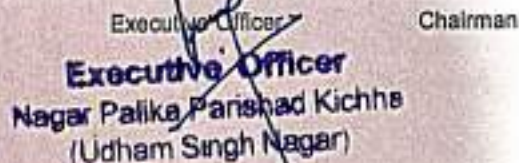 Executive Officer Chairman
Executive Officer
Nagar Palika Parishad Kichha
(Udham Singh Nagar)